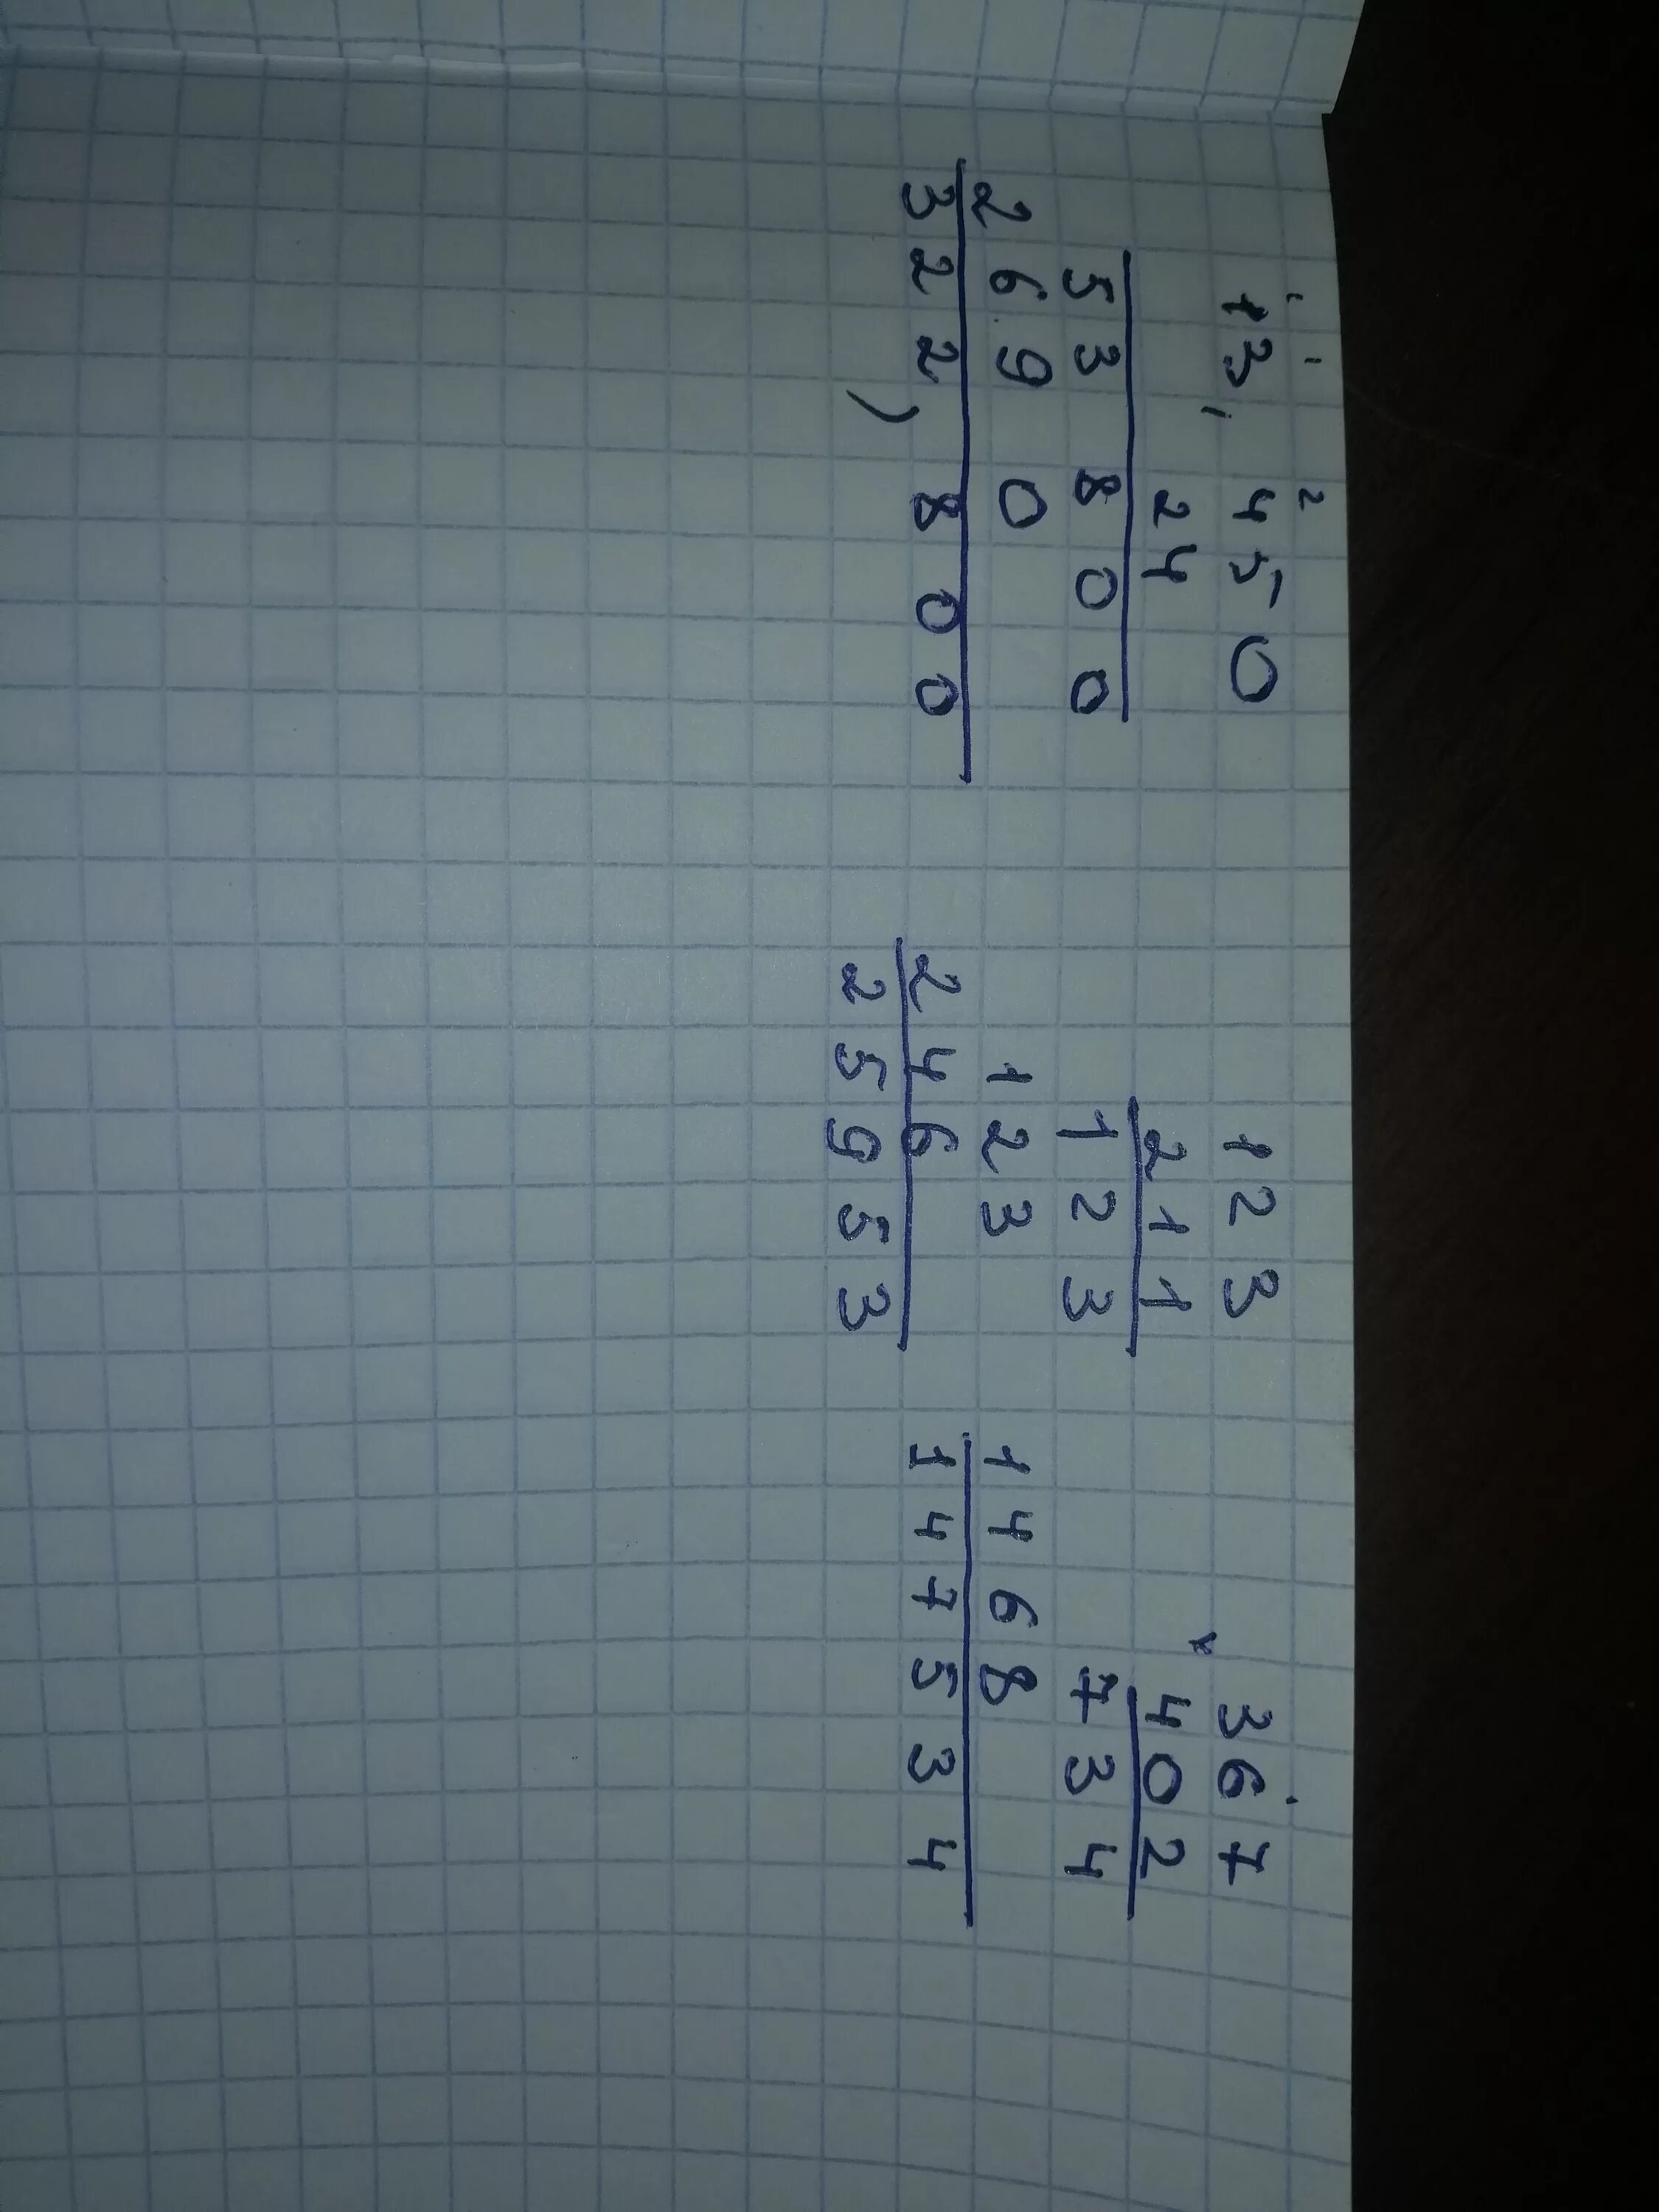 1 1 2
13,450
24
53800
26.90
322,800
123
211
123
123
246
25953
367
× 402
734
1468
147534